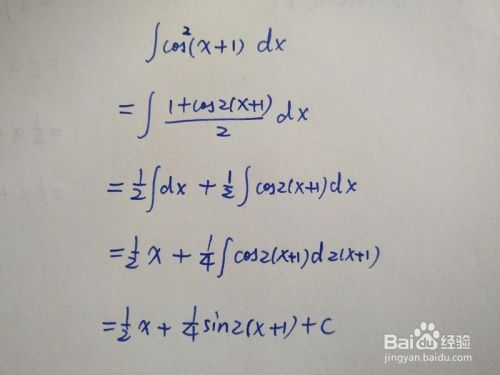 ∫cos²(x+1) dx
= ∫ (1+cos2(x+1))/2 dx
= 1/2 ∫dx + 1/2 ∫cos2(x+1)dx
= 1/2 x + 1/4 ∫cos2(x+1)d2(x+1)
= 1/2 x + 1/4 sin2(x+1) + C
Baidu经验
jingyan.baidu.com